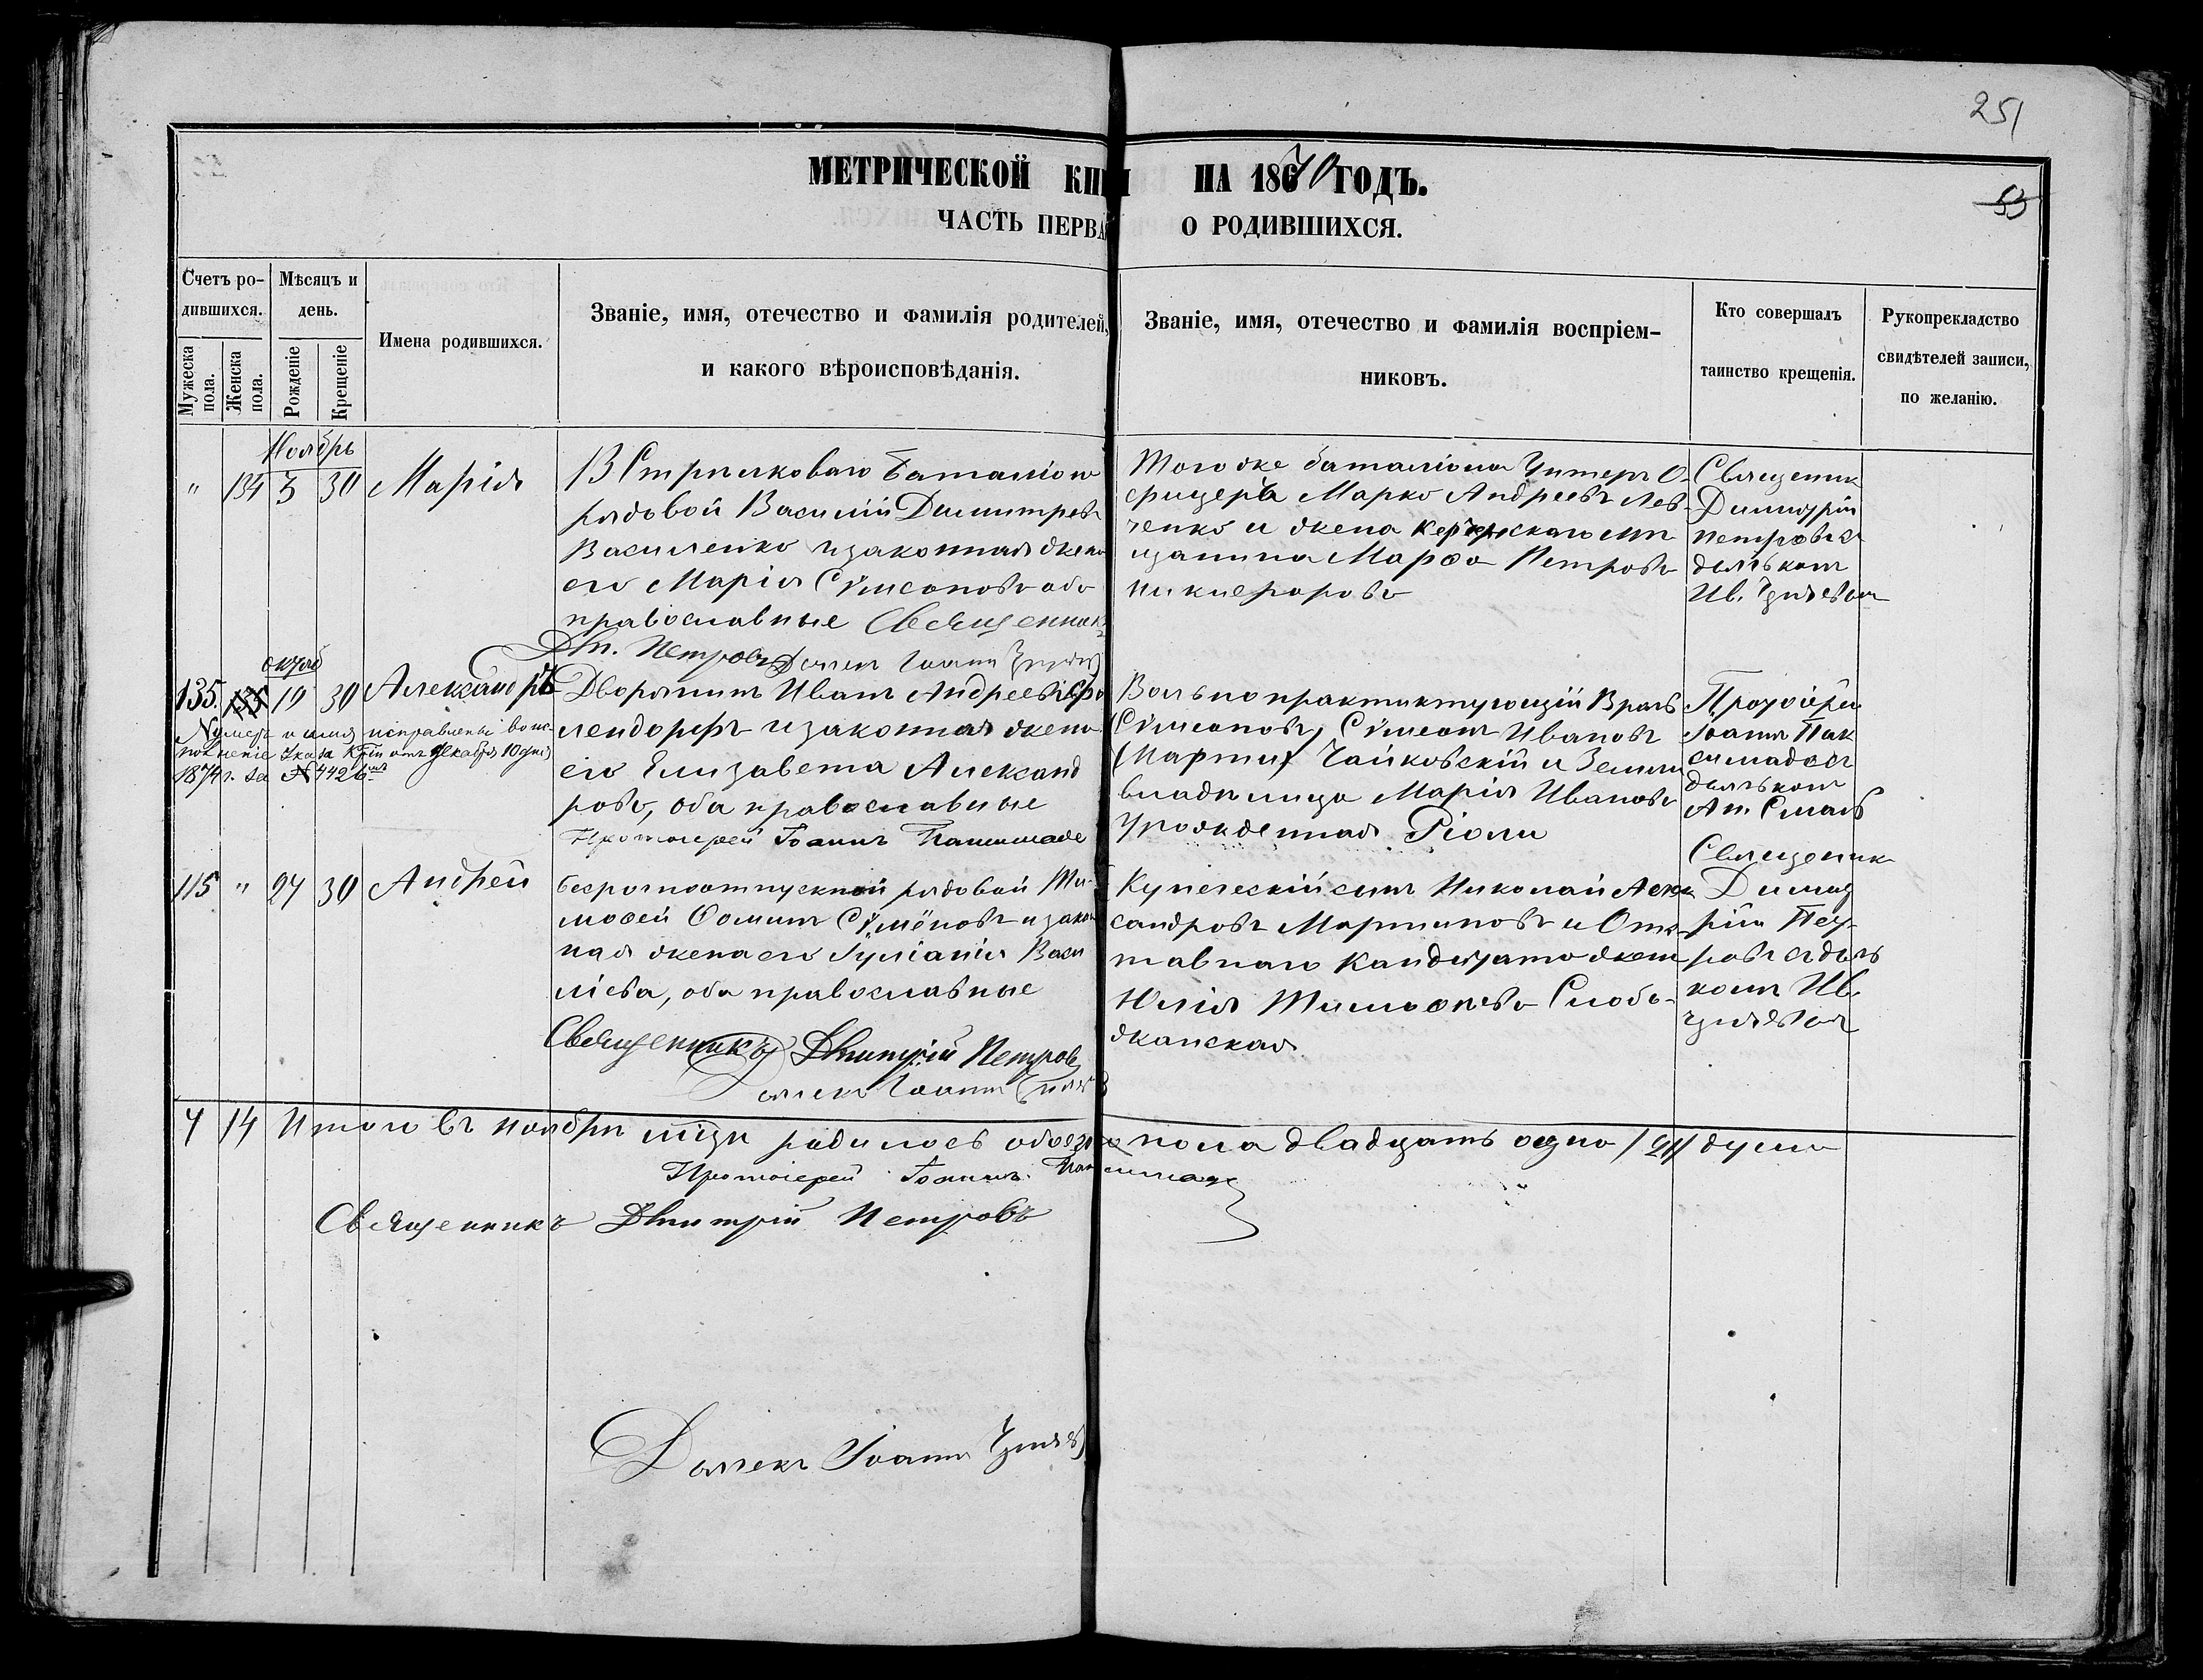 251
53
МЕТРИЧЕСКОЙ КНИ НА 1870 ГОДЪ.
ЧАСТЬ ПЕРВА О РОДИВШИХСЯ.
Счетъ ро-
дившихся.
Мужеска пола.
Женска пола.
Мѣсяцъ и
день.
Рожденіе
Крещеніе
Имена родившихся.
Званіе, имя, отечество и фамилія родителей,
и какого вѣроисповѣданія.
Званіе, имя, отечество и фамилія воспріем-
никовъ.
Кто совершалъ
таинство крещенія.
Рукоприкладство
свидѣтелей записи,
по желанію.
Ноябрь
" 134 3 30 Марія
Стрѣлковаго Баталіона
рядовой Василій Димитрев
Василенко и законная жена
его Марія Сѵмеонова оба
православные Священникъ
Дм. Петровъ Дячекъ Іоаннъ
Того же баталіона Унтеръ О-
фицеръ Марко Андреевъ Лев
ченко и жена Керченскаго мѣ
щанина Марѳа Петрова
Никифорова
Священик
Димитрій
Петровъ съ
дячькомъ
Ив.
октяб
135. 135 19 30 Александръ
Нумеръ и имя исправлены во ис-
полненіе Указа Крім отъ Декабря 10 дня
1874 г. за № 4426мъ
Дворянинъ Иванъ Андреевъ
лендорфъ и законная жена
его Елизавета Александ
рова, оба православные
Протоіерей Іоаннъ
Вольнопрактикующій Врачъ
Сѵмеоновъ, Сѵмеонъ Ивановъ
(Мартин) Чайковскій и Земле
владѣлица Марія Иванова
урожденная Ріоли
Протоіерей
Іоаннъ Пак
симадовъ
дячькомъ
Ан.
115 " 27 30 Андрей
безсрочноотпускной рядовой Ти-
моѳей Ѳоминъ Сѵмёновъ и закон
ная жена его Іуліанія Васи
ліева, оба православные
Священникъ Дмитрій Петровъ
Дячекъ Іоаннъ
Купеческій сынъ Николай Алек
сандровъ Мартиновъ и Отс-
тавнаго Кандидата жена
Юлія Тимоѳеева Слобо-
жанская.
Священик
Димит
рій Пет
ровъ съ дячь
комъ Ив.
7 14 Итого въ ноябрѣ мцѣ родилось обоего пола двадцать одна /21/ душа
Протоіерей Іоаннъ
Священникъ Дмитрій Петровъ
Дячекъ Іоаннъ